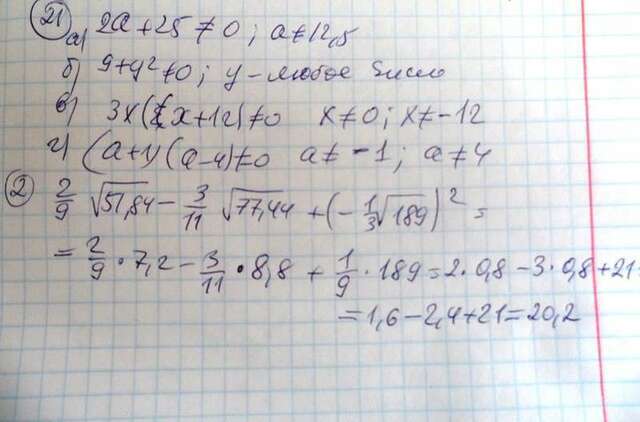 21) а) 2a+25≠0; a≠12,5
б) 9+y²≠0; y - любое число
в) 3x(x+12)≠0 x≠0; x≠-12
г) (a+1)(a-4)≠0 a≠-1; a≠4
2) 2/9 √51,84 - 3/11 √77,44 + (-1/3 √189)² =
= 2/9 • 7,2 - 3/11 • 8,8 + 1/9 · 189 = 2·0,8 - 3·0,8 + 21 =
= 1,6 - 2,4 + 21 = 20,2